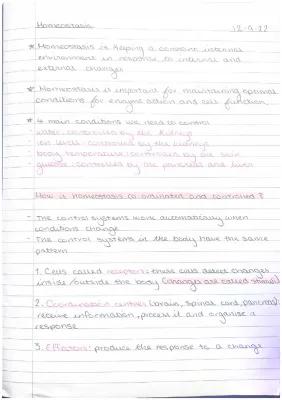 Homeostasis 12·9·22
* Homeostasis is keeping a constant internal
environment in response to internal and
external changes
* Homeostasis is important for maintaining optimal
conditions for enzyme action and cell function
* 4 main conditions we need to control
- water: controlled by the kidneys
- ion levels: controlled by the kidneys
- body temperature: controlled by the skin
- glucose: controlled by the pancreas and liver
How is homeostasis co-ordinated and controlled?
- The control systems work automatically when
conditions change
- The control systems in the body have the same
pattern
1. Cells called receptors: these cells detect changes
inside/outside the body (changes are called stimuli)
2. Coordination centres (brain, spinal cord, pancreas):
receive information, process it and organise a
response
3. Effectors: produce the response to a change